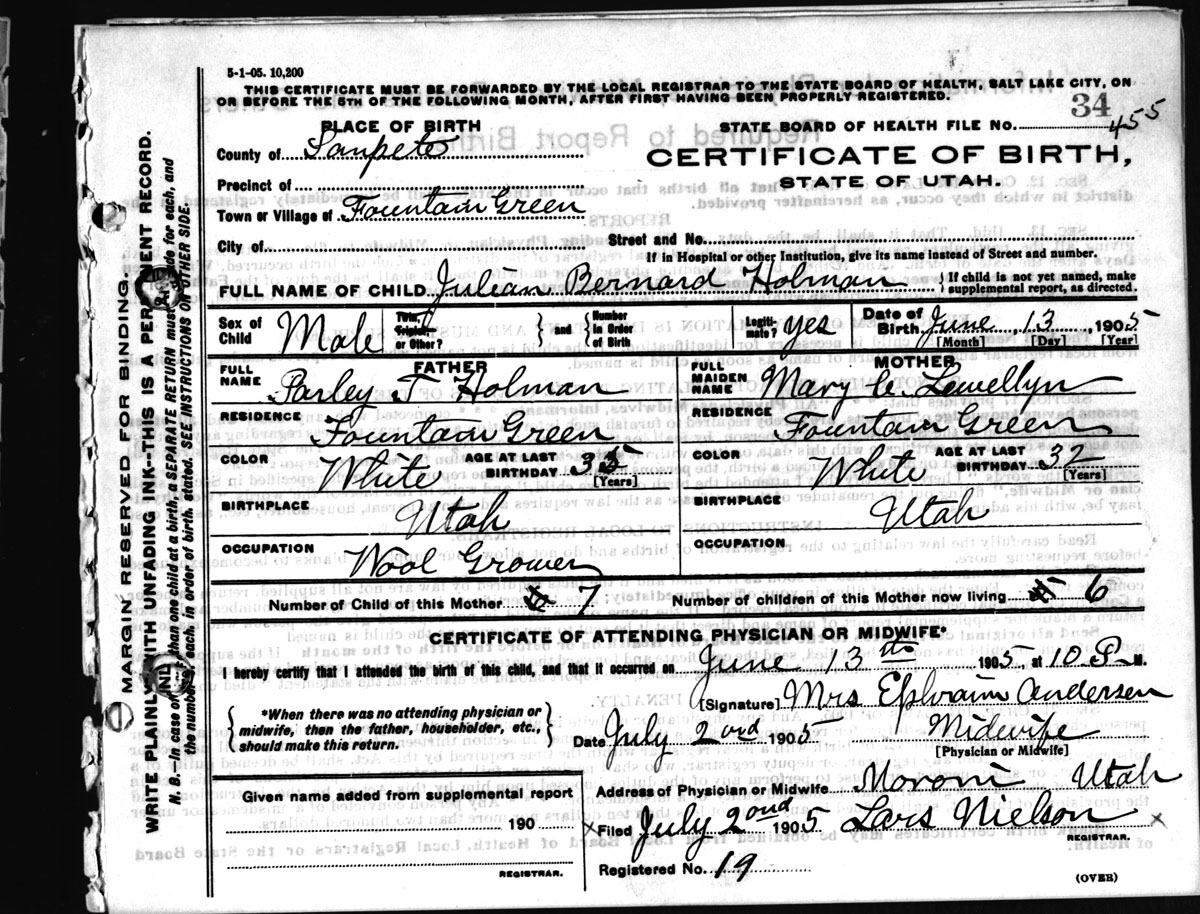 5-1-05. 10,200
THIS CERTIFICATE MUST BE FORWARDED BY THE LOCAL REGISTRAR TO THE STATE BOARD OF HEALTH, SALT LAKE CITY, ON
OR BEFORE THE 5TH OF THE FOLLOWING MONTH, AFTER FIRST HAVING BEEN PROPERLY REGISTERED.
34
PLACE OF BIRTH
STATE BOARD OF HEALTH FILE NO. 455
County of Sanpete
CERTIFICATE OF BIRTH,
STATE OF UTAH.
Precinct of
Town or Village of Fountain Green
City of
Street and No.
If in Hospital or other Institution, give its name instead of Street and number.
FULL NAME OF CHILD Julian Bernard Holman { If child is not yet named, make supplemental report, as directed.
Sex of Child Male Twin, Triplet, or Other? } and { Number in Order of Birth Legiti- mate? yes Date of Birth June, 13, 1905
[Month] [Day] [Year]
FATHER
MOTHER
FULL NAME Parley T Holman
FULL MAIDEN NAME Mary C. Lewellyn
RESIDENCE Fountain Green
RESIDENCE Fountain Green
COLOR White AGE AT LAST BIRTHDAY 35 [Years]
COLOR White AGE AT LAST BIRTHDAY 32 [Years]
BIRTHPLACE Utah
BIRTHPLACE Utah
OCCUPATION Wool Grower
OCCUPATION
Number of Child of this Mother 7
Number of children of this Mother now living 6
CERTIFICATE OF ATTENDING PHYSICIAN OR MIDWIFE*
I hereby certify that I attended the birth of this child, and that it occurred on June 13th 1905, at 10 P. M.
{ *When there was no attending physician or midwife, then the father, householder, etc., should make this return. }
[Signature] Mrs Ephraim Andersen
Date July 2ond 1905 Midwife
[Physician or Midwife]
Address of Physician or Midwife Moroni Utah
Given name added from supplemental report
190
REGISTRAR.
x Filed July 2ond 1905 Lars Nielson x
REGISTRAR.
Registered No. 19
(OVER)
MARGIN RESERVED FOR BINDING.
WRITE PLAINLY WITH UNFADING INK--THIS IS A PERMANENT RECORD.
N. B.--In case of more than one child at a birth, a SEPARATE RETURN must be made for each, and
the number of each, in order of birth, stated. SEE INSTRUCTIONS ON OTHER SIDE.